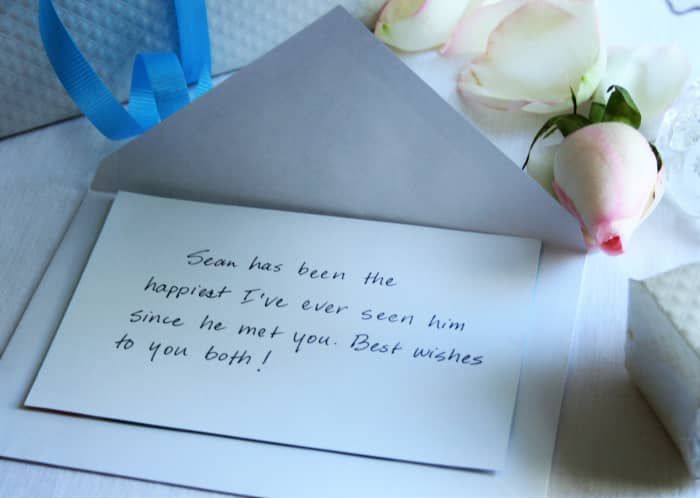 Sean has been the
happiest I've ever seen him
since he met you. Best wishes
to you both!